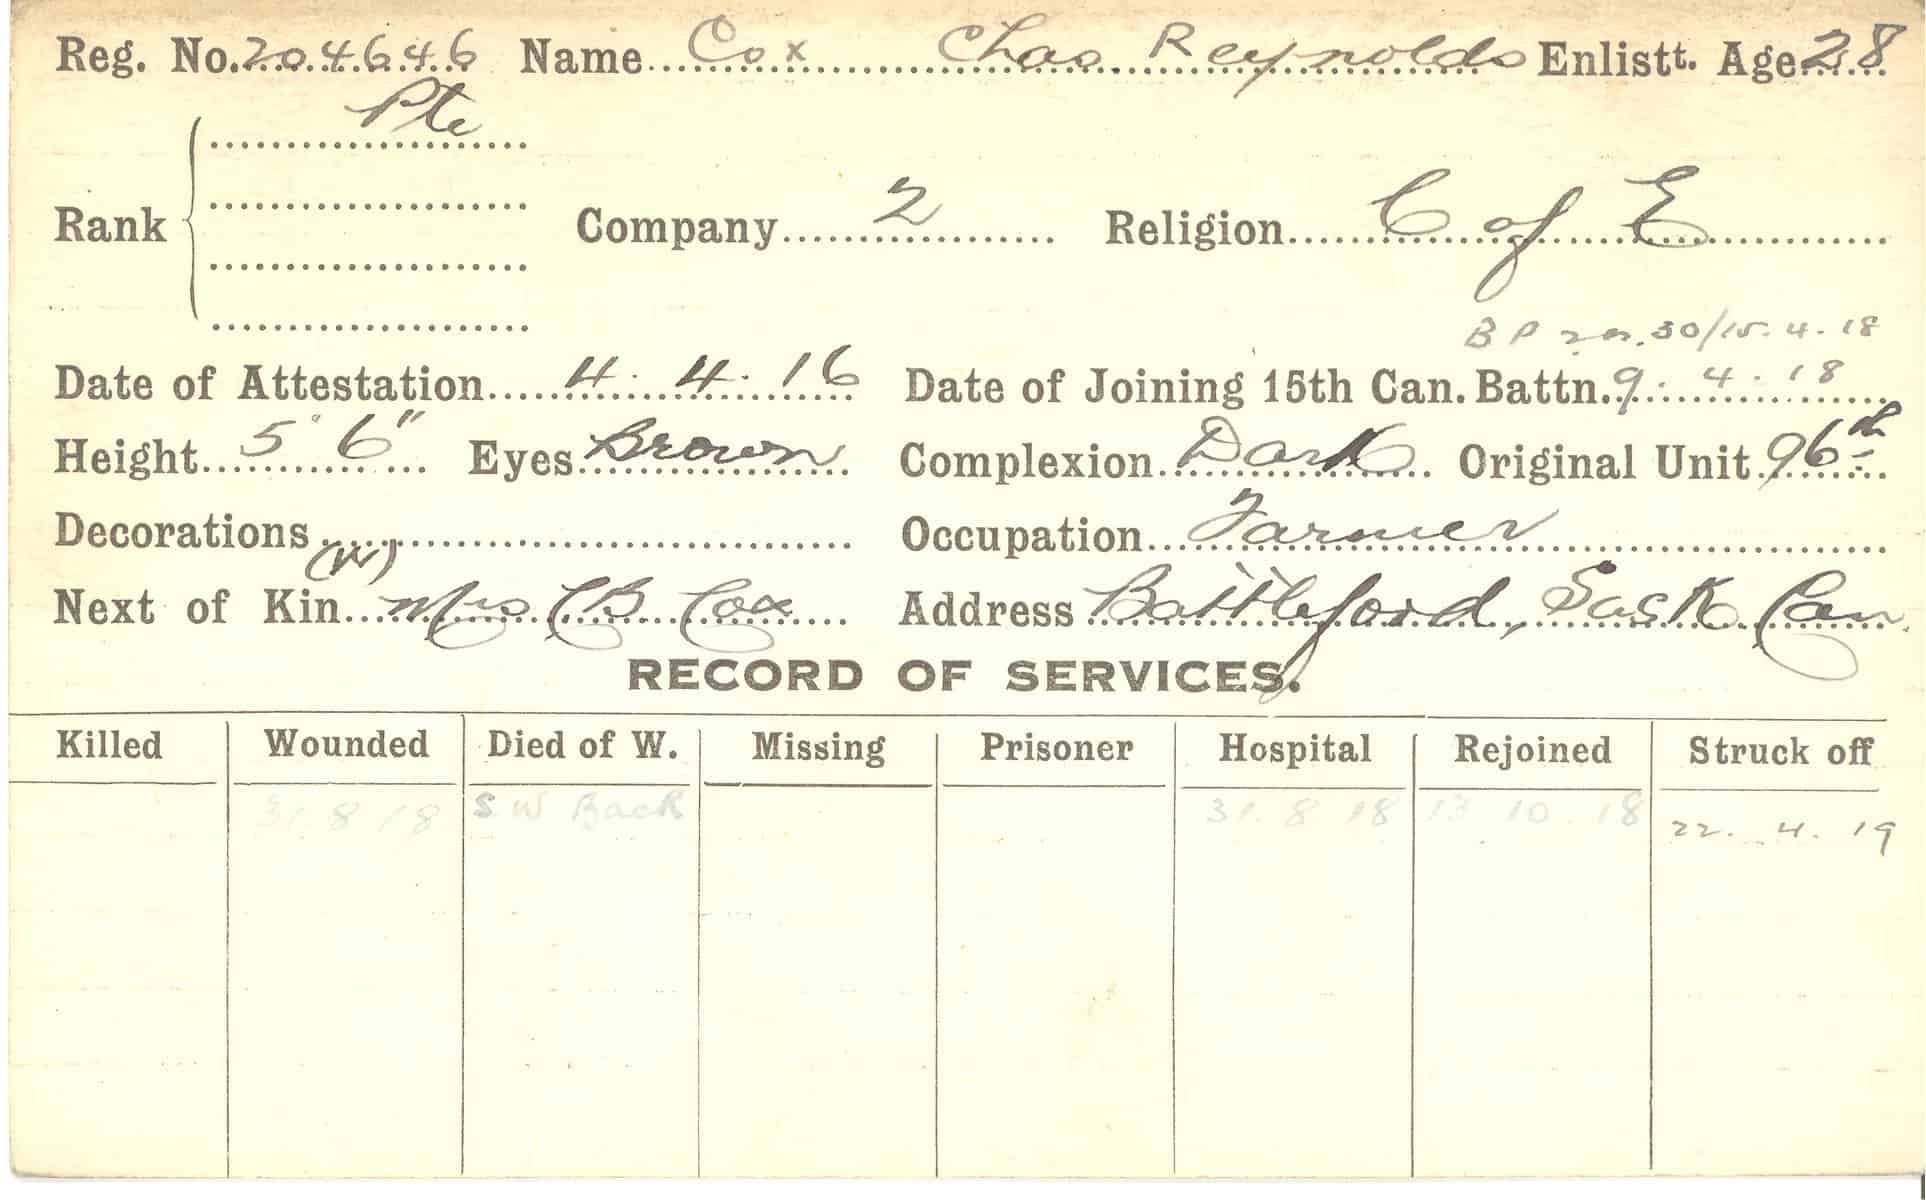 Reg. No. 204646 Name Cox Chas Reynolds Enlistt. Age 28
Pte
Rank Company 2 Religion C of E
B P 30/15.4.18
Date of Attestation 4.4.16 Date of Joining 15th Can. Battn. 9.4.18
Height 5' 6" Eyes Brown Complexion Dark Original Unit 96th
Decorations Occupation Farmer
(W)
Next of Kin Mrs C B Cox Address Battleford, Sask Can.
RECORD OF SERVICES.
Killed Wounded Died of W. Missing Prisoner Hospital Rejoined Struck off
31 8 18 S W Back 31. 8 18 13 10. 18 22. 4. 19